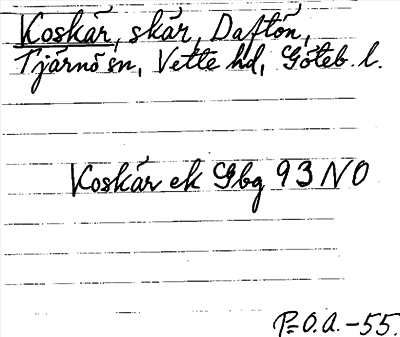 Koskär, skär, Daftön,
Tjärnö sn, Vette hd, Göteb. l.
Koskär ek Gbg 93 NO
P=O.A.-55.